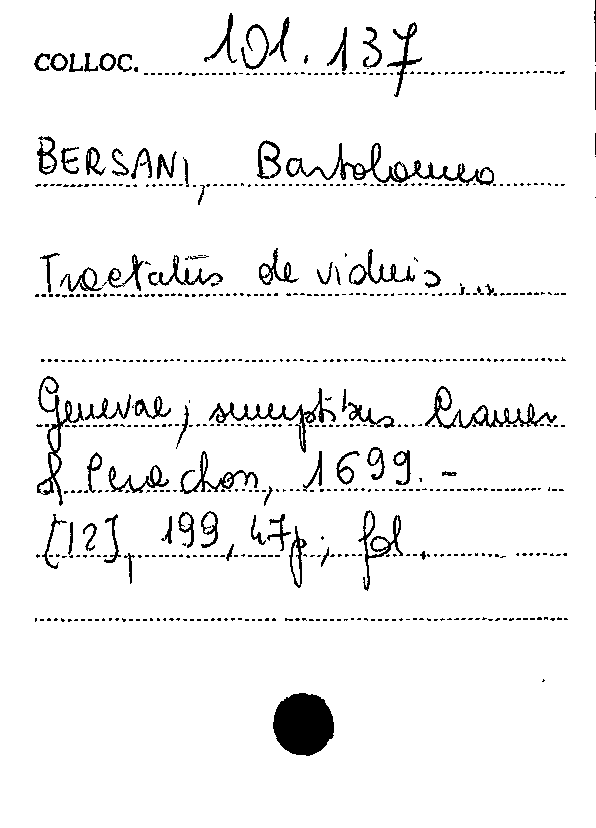 COLLOC. 101.137
BERSANI, Bartolomeo
Tractatus de viduis...
Genevae, sumptibus Cramer
& Perachon, 1699. -
[12], 199, 47p; fol.